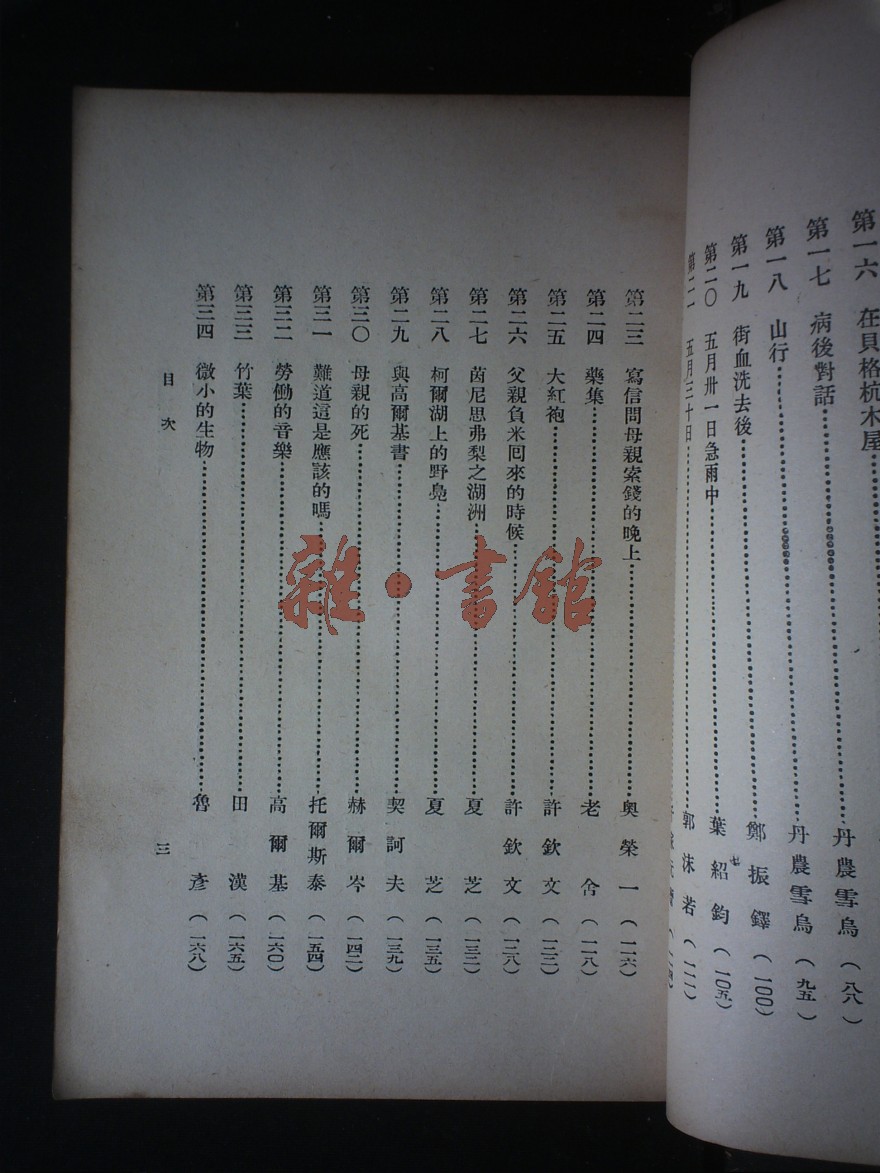 第一六　在貝格杭木屋…………丹農雪烏（八八）
第一七　病後對話…………丹農雪烏（九五）
第一八　山行…………鄭振鐸（一00）
第一九　街血洗去後…………鄭振鐸
第二〇　五月卅一日急雨中…………葉紹鈞（一0五）
五月三十日…………郭沫若（一一一）
第二三　寫信問母親索錢的晚上…………奧榮一（一二六）
第二四　藥集…………老舍（一二八）
第二五　大紅袍…………許欽文（一三二）
第二六　父親負米回來的時候…………許欽文（一二八）
第二七　茵尼思弗梨之湖洲…………夏芝（一三二）
第二八　柯爾湖上的野鳧…………夏芝（一三五）
第二九　與高爾基書…………契訶夫（一三九）
第三〇　母親的死…………赫爾岑（一四二）
第三一　難道這是應該的嗎…………托爾斯泰（一五四）
第三二　勞働的音樂…………高爾基（一六〇）
第三三　竹葉…………田漢（一六五）
第三四　微小的生物…………魯彥（一六八）
目次
三
雜·書館